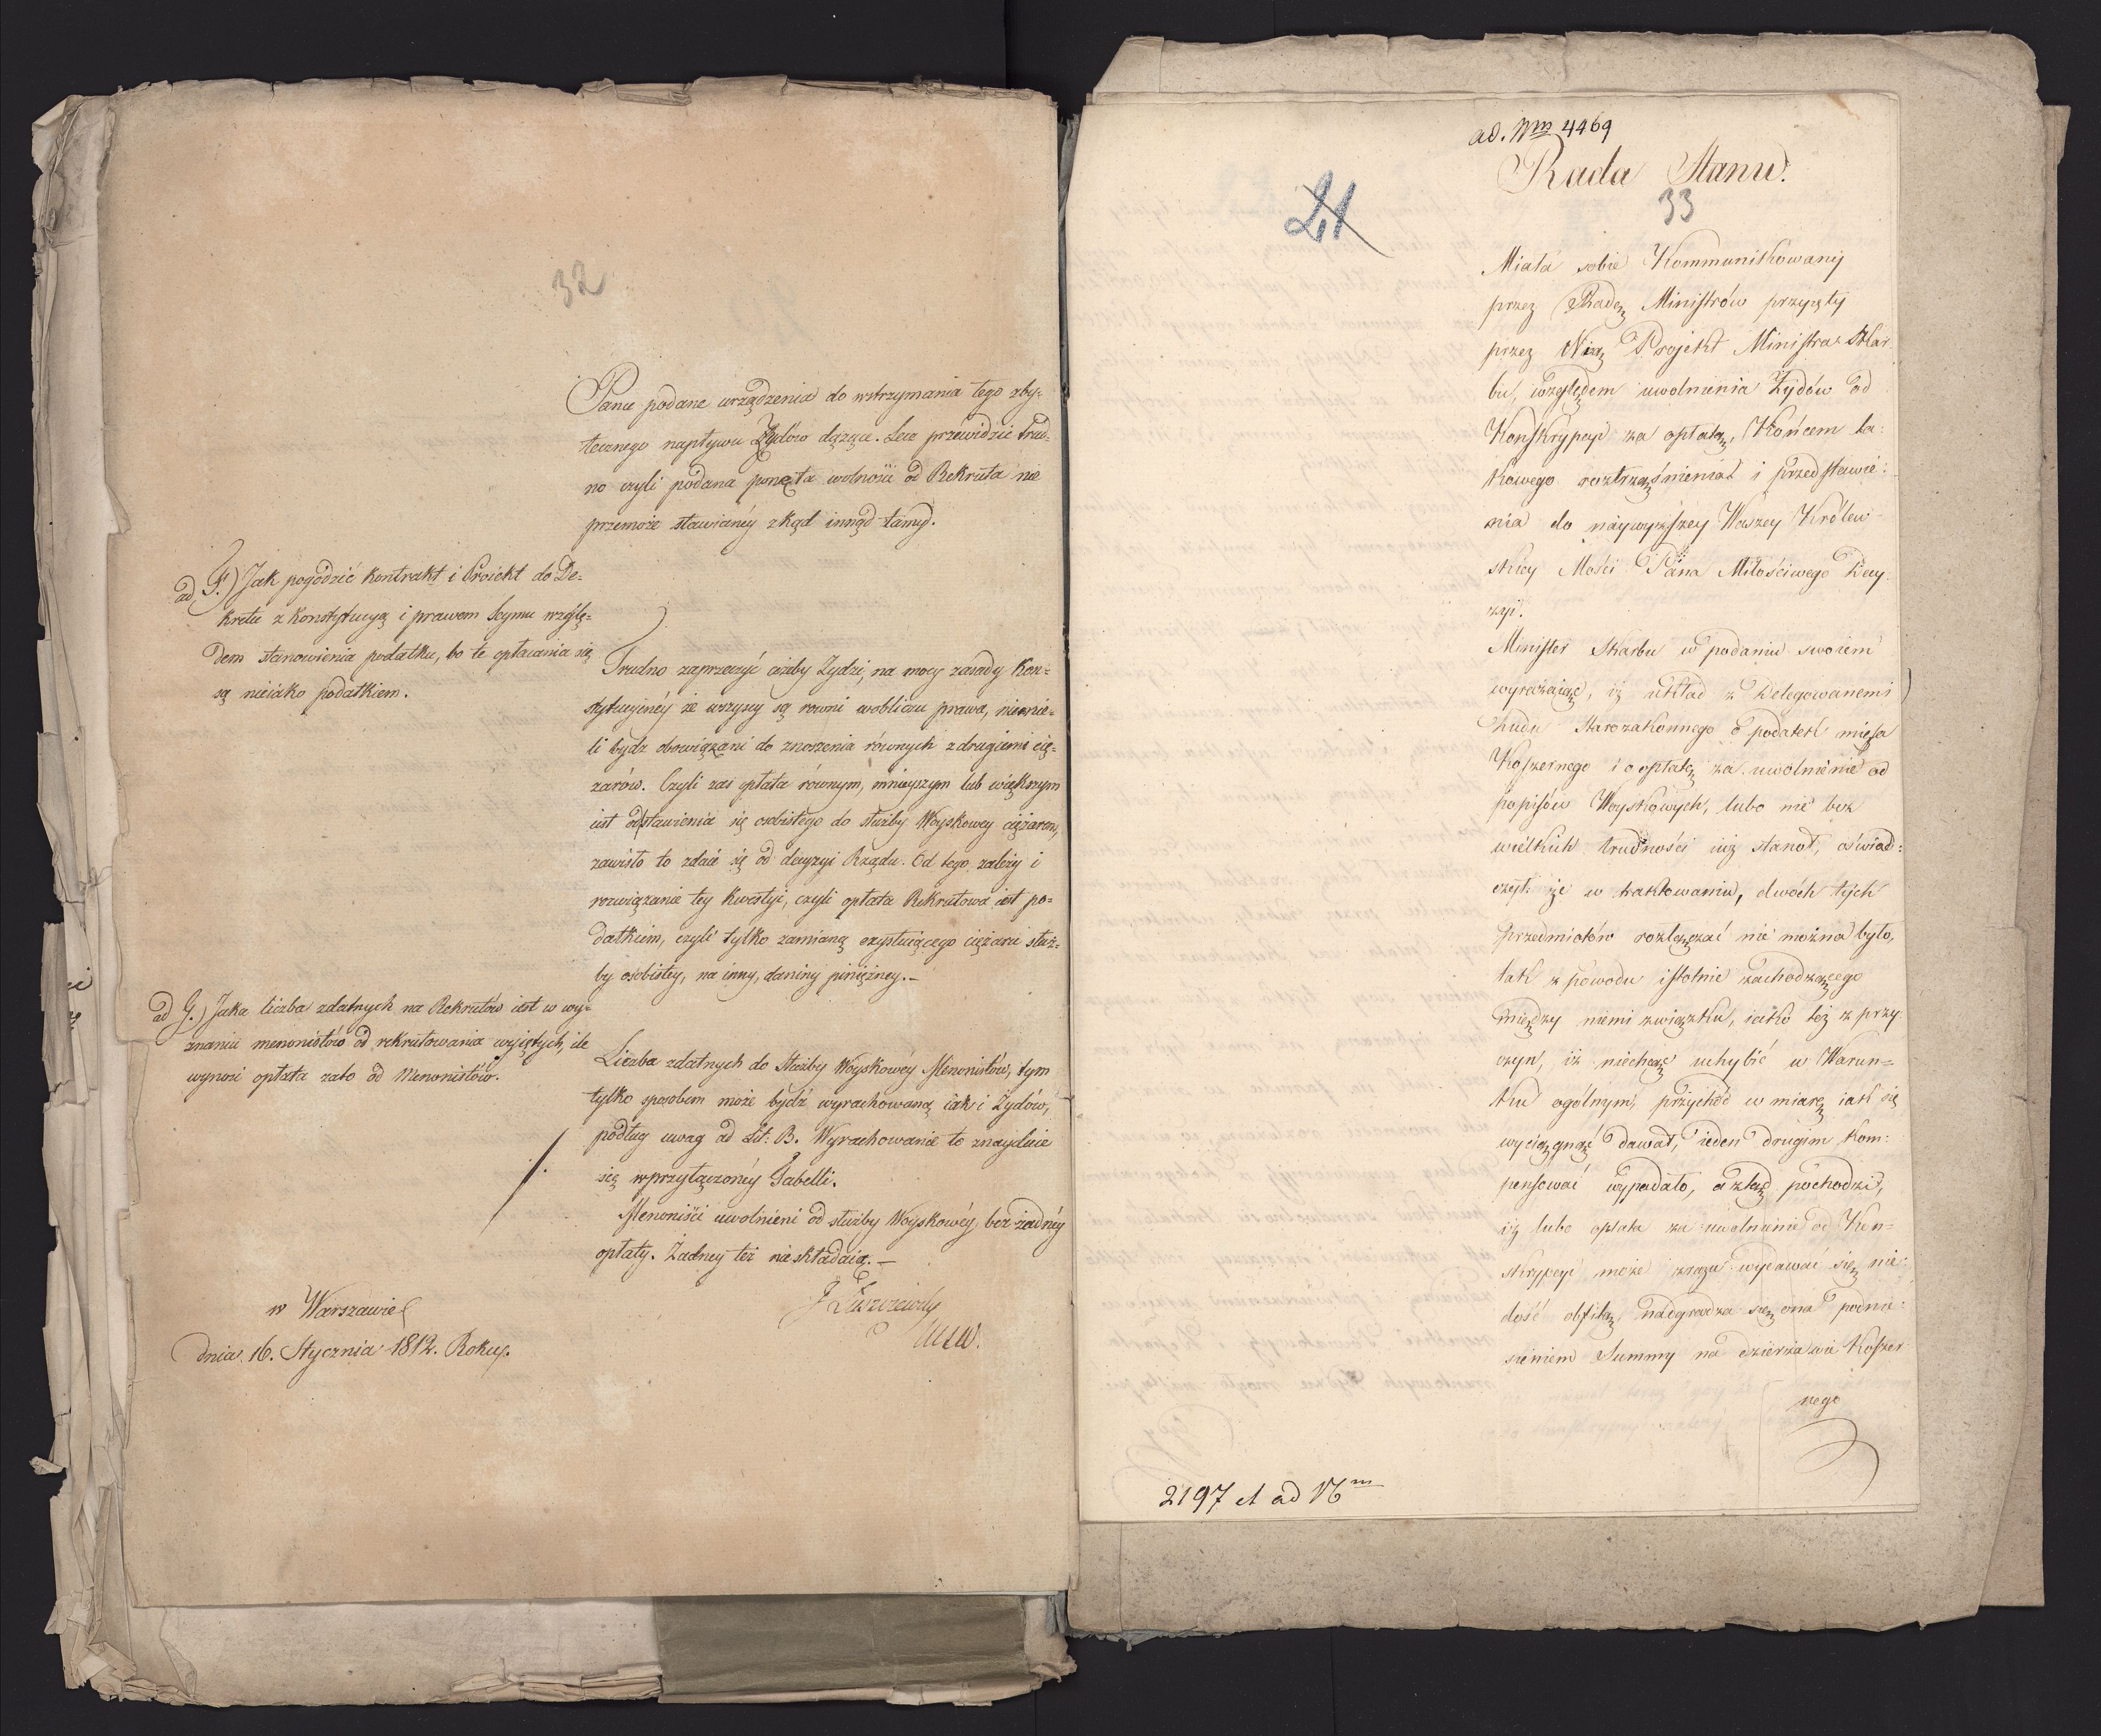 32
Panu podane urządzenia do wstrzymania tego zby-
tecznego napływu Żydów dążące. Lecz przewidzić trud-
no czyli podana ponęta wolności od Rekruta nie
przemoże stawianéy zkąd innąd tamy.
ad F.) Jak pogodzić kontrakt i Proiekt do De-
kretu z Konstytucyą i prawem Seymu wzglę-
dem stanowienia podatku, bo te opłacania się
są nieiáko podatkiem.
Trudno zaprzeczyć ażeby Żydzi, na mocy zasady Kon-
stytucyinéy że wszyscy są rowni wobliczu prawa, niemie-
li bydz obowiązani do znoszenia równych z drugiemi cię-
zarów. Czyli zaś opłata równym, mnieyszym lub większym
iest odstawienia się osobistego do służby Woyskowey ciężarem,
zawisło to zdaie się od decyzyi Rządu. Od tego zależy i
rozwiązanie tey kwestyi, czyli opłata Rekrutowa iest po-
datkiem, czyli tylko zamianą exystuiącego ciężaru służ-
by osobistey, na inny, daniny pieniężney.—
ad G.) Jaka liczba zdatnych na Rekrutów iest w wy-
znaniu menonistów od rekrutowania wyiętych, ile
wynosi opłata zato od Menonistów.
Liczba zdatnych do Służby Woyskowéy Menonistów, tym
tylko sposobem może bydź wyrachowaną iak i Żydów,
podług uwag ad Lit: B. Wyrachowanie to znayduie
się w przyłączonéy Tabelli.
Menoniści uwolnieni od służby Woyskowéy, bez żadnéy
opłaty. Żadney też nie składaią.—
J Łuszczewsky
w Warszawie
dnia 16. Stycznia 1812. Roku.
ad. Nm 4469
Rada Stanu.
21
33
Miała sobie Kommunikowany
przez Radę Ministrów przyięty
przez Nią Projekt Ministra Skar-
bu, względem uwolnienia Żydów od
Konskrypcyi za opłatą, Końcem ta-
kowego roztrząśnienia i przedstawie-
nia do naywyższey Waszey Królew-
skiey Mości Pana Miłościwego Decy-
zyi.
Minister Skarbu w podaniu swoiem
wyrażaiąc, iż układ z Delegowanemi
Ludu Starozakonnego o podatek mięsa
Koszernego i o opłatę za uwolnienie od
popisów Woyskowych, lubo nie bez
wielkich trudności iuż stanoł, oświad-
czył że w traktowaniu, dwóch tych
przedmiotów rozłączać nie można było,
tak z powodu istotnie zachodzącego
między niemi związku, iako też z przy-
czyn, iż niechcąc uchybić w Warun-
ku ogólnym, przychód w miarę iak się
wyciągnąć dawał, ieden drugim kom-
pensować wypadało, a ztąd pochodzi,
iż lubo opłata za uwolnienie od Kon-
skrypcyi może zrazu wydawać się nie-
dość obfitą, nadgradza się ona podnie-
sieniem Summy na dzierżawie Koszer-
nego
2197 et ad 176m